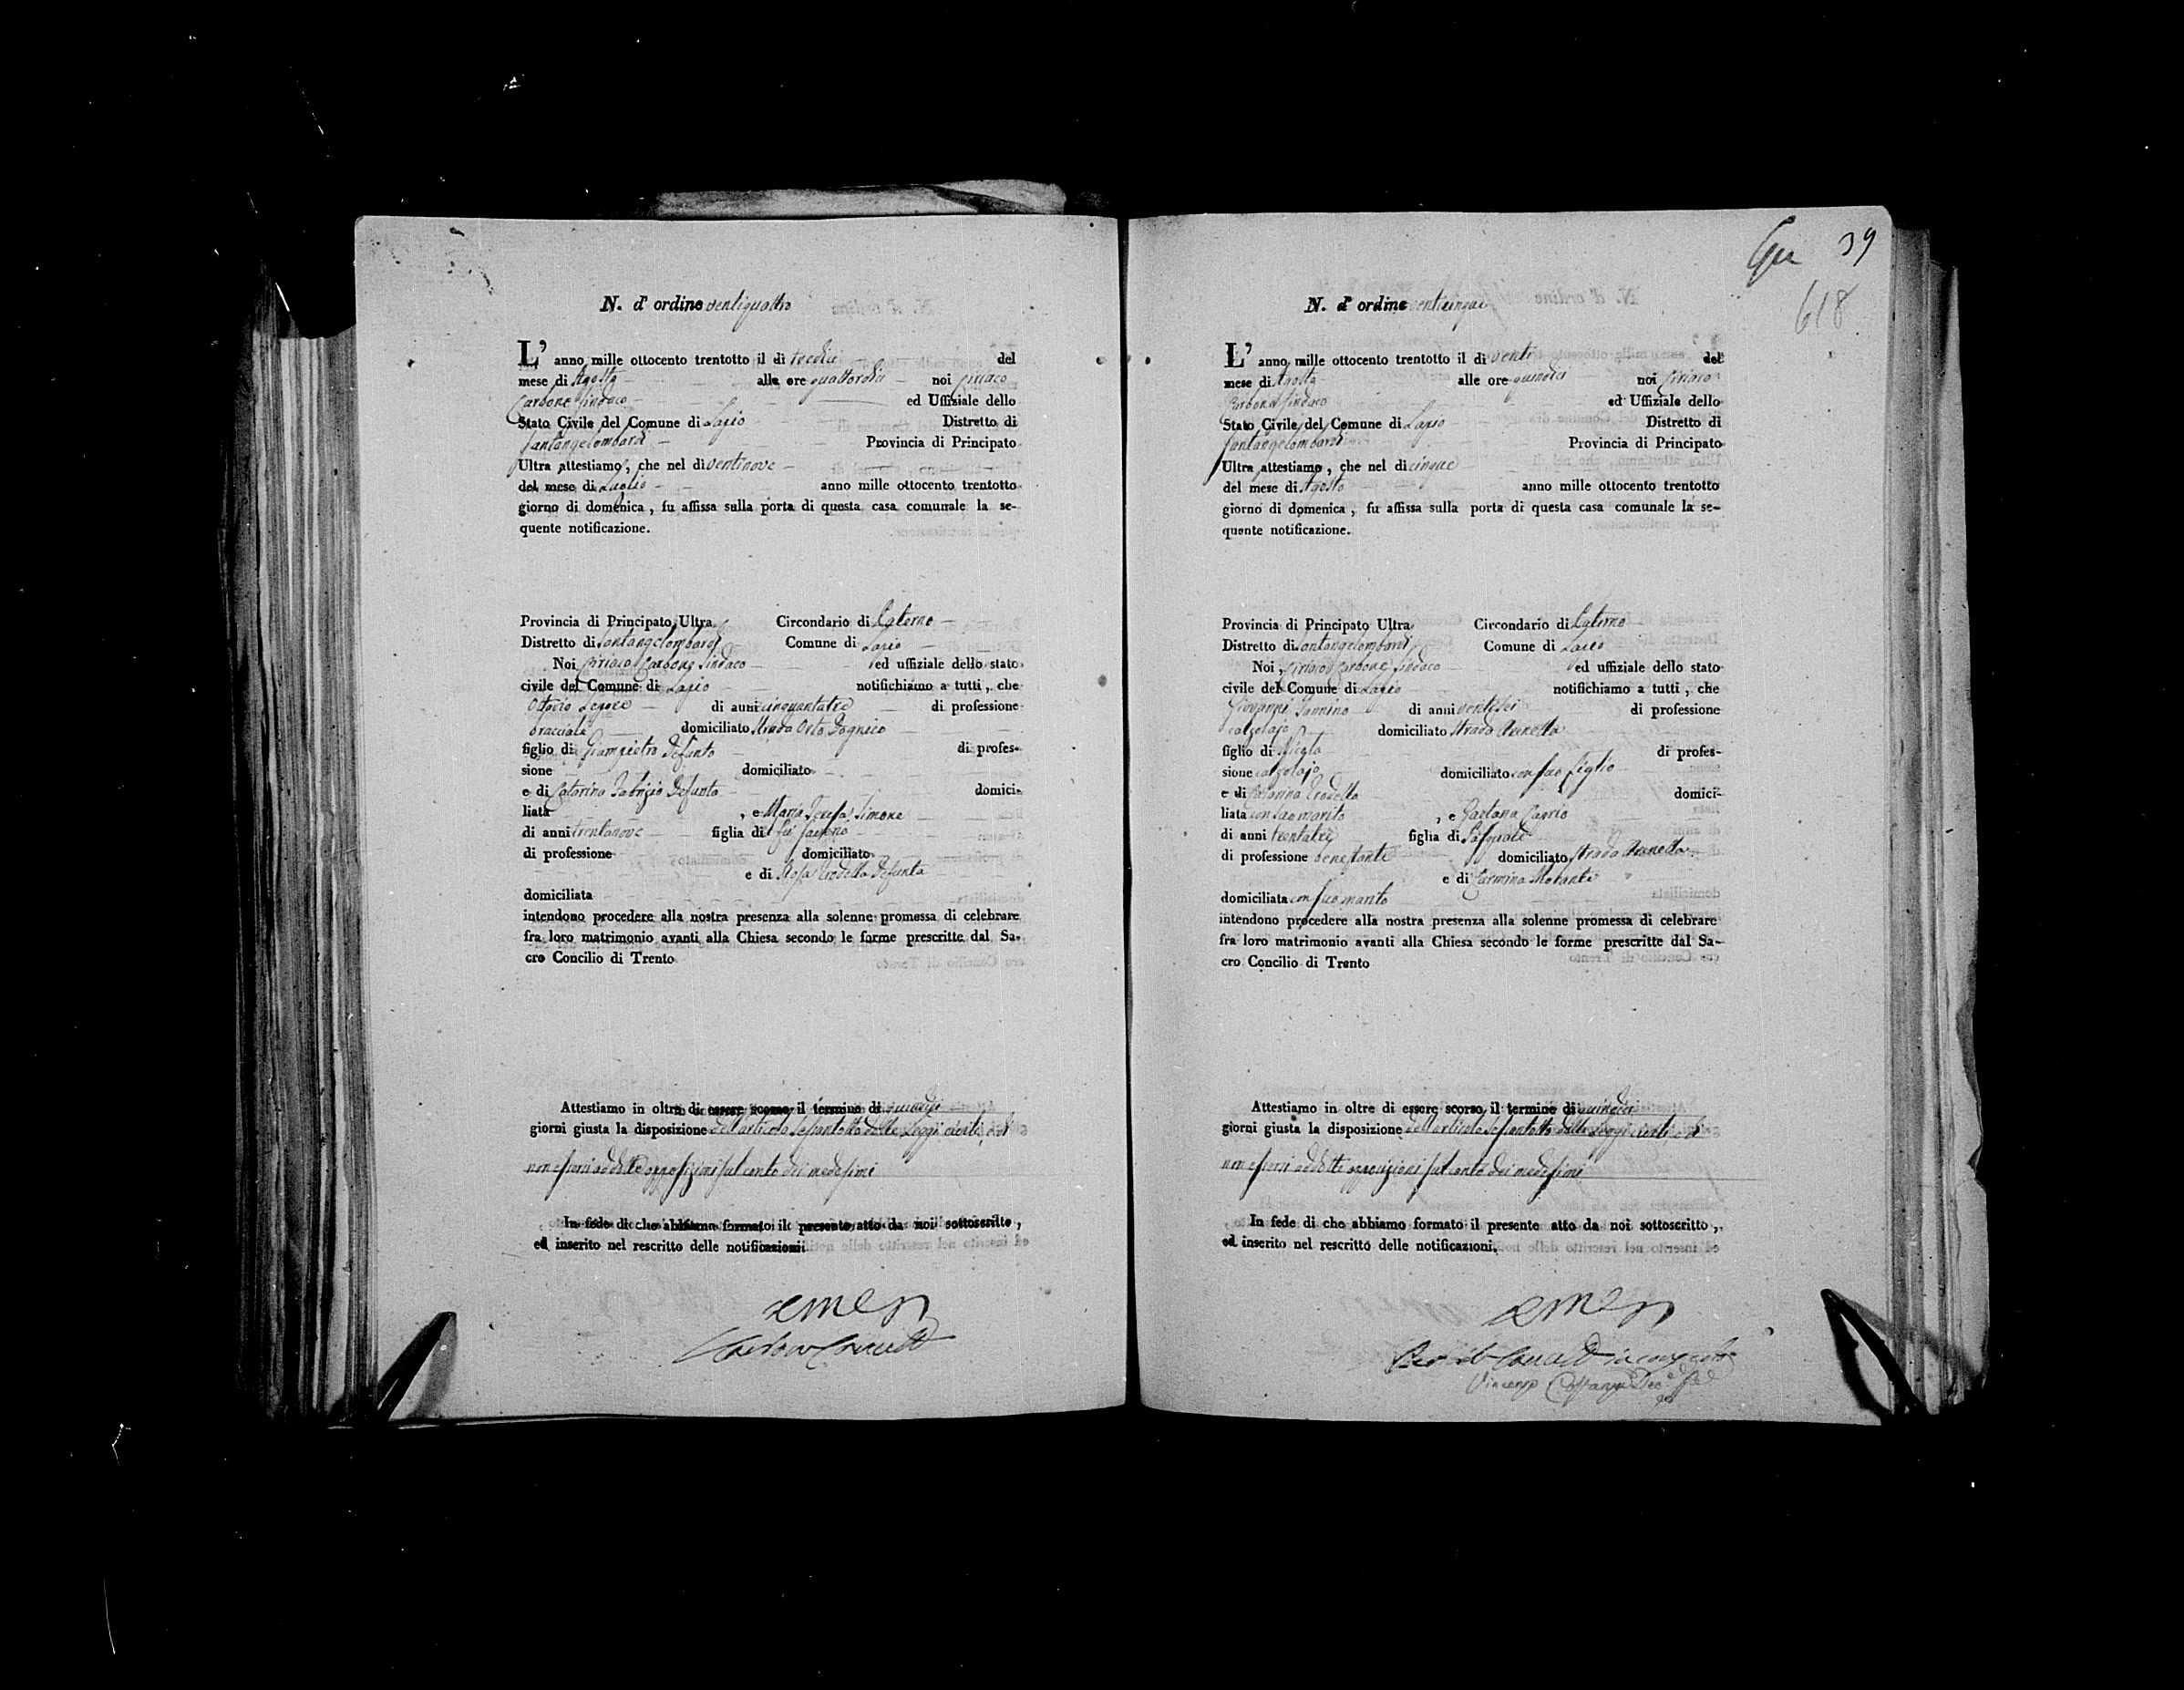 N. d' ordine ventiquattro
L' anno mille ottocento trentotto il dì tredici del
mese di Agosto alle ore quattordici noi Ciriaco
Carbone Sindaco ed Uffiziale dello
Stato Civile del Comune di Lapio Distretto di
Santangelombardi Provincia di Principato
Ultra attestiamo, che nel dì ventinove
del mese di Luglio anno mille ottocento trentotto
giorno di domenica, fu affissa sulla porta di questa casa comunale la se-
quente notificazione.
Provincia di Principato Ultra Circondario di Paterno
Distretto di Santangelombardi Comune di Lapio
Noi Ciriaco Carbone Sindaco ed uffiziale dello stato
civile del Comune di Lapio notifichiamo a tutti, che
di anni cinquantatre di professione
bracciale domiciliato Strada Orto
figlio di Giampietro defunto di profes-
sione domiciliato
e di Catarina Fabrizio defunta domici-
liata , e Maria Teresa Simone
di anni trentanove figlia di fu
di professione domiciliato
e di Rosa Trodella defunta
domiciliata
intendono procedere alla nostra presenza alla solenne promessa di celebrare
fra loro matrimonio avanti alla Chiesa secondo le forme prescritte dal Sa-
cro Concilio di Trento
Attestiamo in oltre di essere scorso il termine di quindici
giorni giusta la disposizione dell'articolo sessantotto delle Leggi civili, ed
non essersi addotte opposizioni sul conto dei medesimi
In fede di che abbiamo formato il presente atto da noi sottoscritto,
ed inserito nel rescritto delle notificazioni
Gu 39
618
N. d' ordine venticinque
L' anno mille ottocento trentotto il dì venti del
mese di Agosto alle ore quindici noi Ciriaco
Carbone Sindaco ed Uffiziale dello
Stato Civile del Comune di Lapio Distretto di
Santangelombardi Provincia di Principato
Ultra attestiamo, che nel dì cinque
del mese di Agosto anno mille ottocento trentotto
giorno di domenica, fu affissa sulla porta di questa casa comunale la se-
quente notificazione.
Provincia di Principato Ultra Circondario di Paterno
Distretto di Santangelombardi Comune di Lapio
Noi, Ciriaco Carbone Sindaco ed uffiziale dello stato
civile del Comune di Lapio notifichiamo a tutti, che
Giovanni Iannino di anni ventisei di professione
calzolajo domiciliato Strada
figlio di Nicola di profes-
sione calzolajo domiciliato con suo figlio
e di Catarina Trodella domici-
liata con suo marito , e Gaetana Caprio
di anni trentatre figlia di Pasquale
di professione benestante domiciliato Strada
e di Carmina
domiciliata con suo marito
intendono procedere alla nostra presenza alla solenne promessa di celebrare
fra loro matrimonio avanti alla Chiesa secondo le forme prescritte dal Sa-
cro Concilio di Trento
Attestiamo in oltre di essere scorso il termine di quindici
giorni giusta la disposizione dell'articolo sessantotto delle Leggi civili ed
non essersi addotte opposizioni sul conto dei medesimi
In fede di che abbiamo formato il presente atto da noi sottoscritto,
ed inserito nel rescritto delle notificazioni.